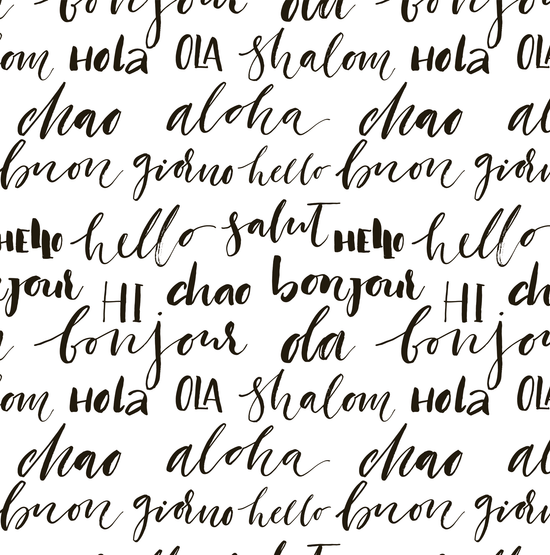 bonjour ola bonjou
om Hola OLA shalom Hola OL
chao aloha chao al
buon giorno hello buon giorn
HELLO hello salut HELLO hello
jour HI chao bonjour HI ch
bonjour ola bonjou
om Hola OLA shalom Hola OLA
chao aloha chao al
buon giorno hello buon giorn